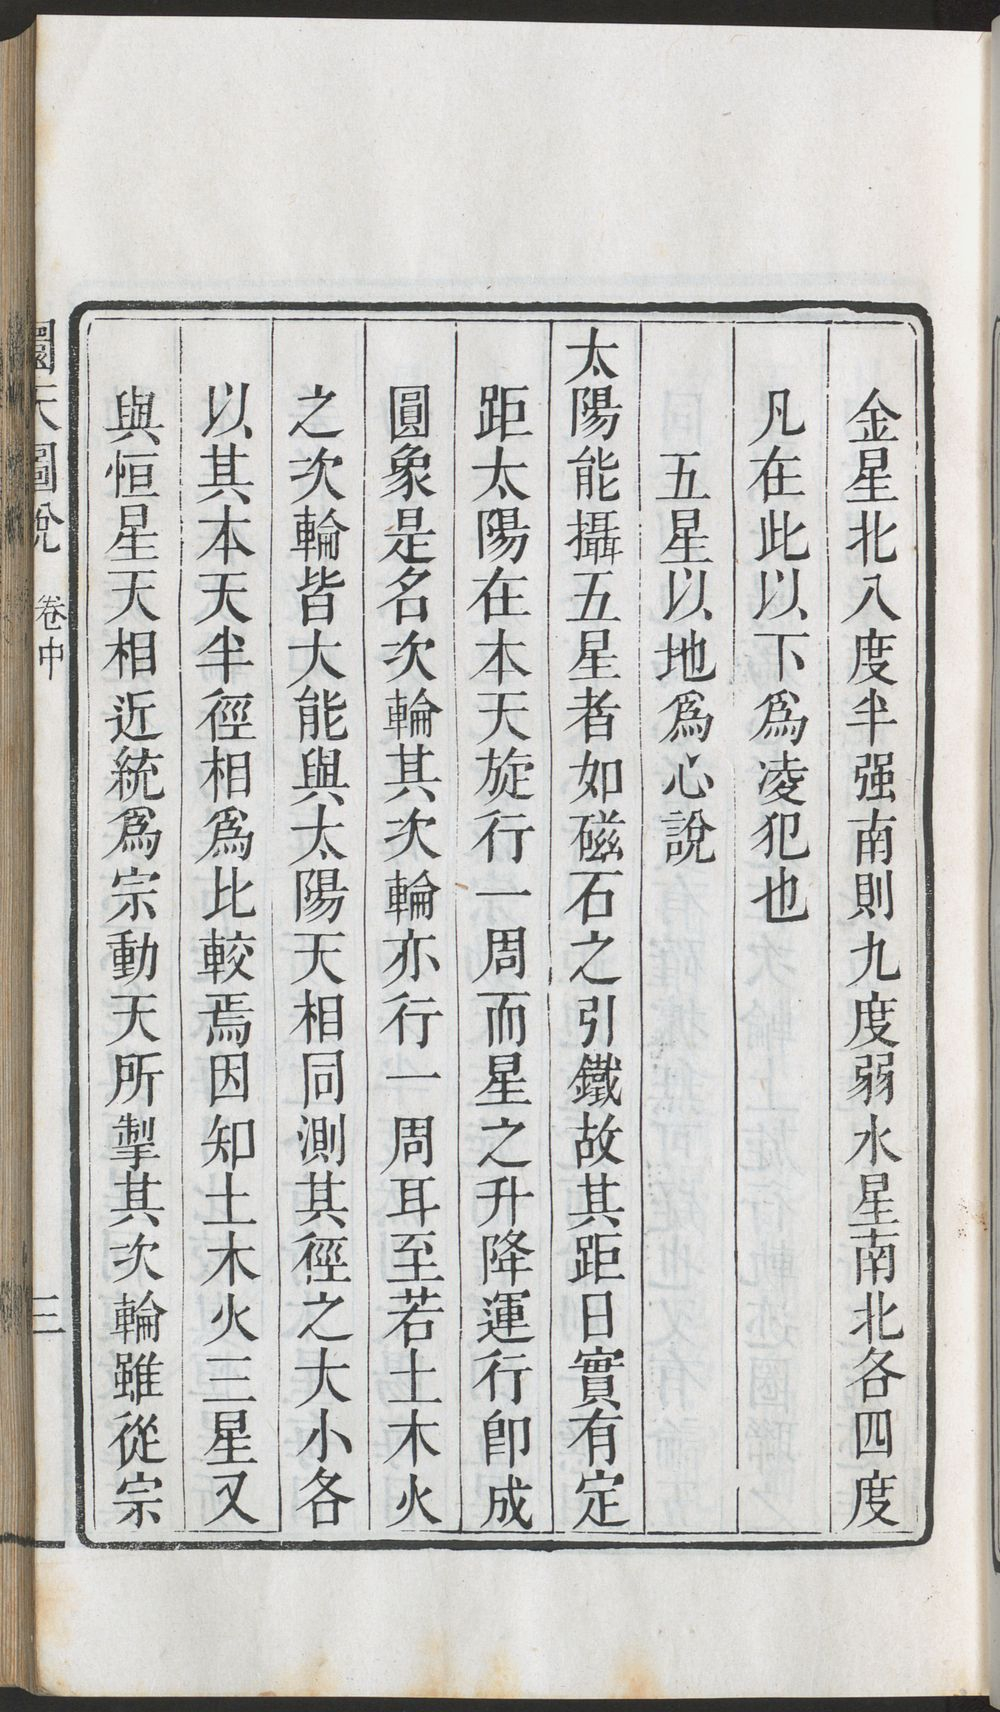 金星北八度半强南則九度弱水星南北各四度
凡在此以下爲凌犯也
五星以地爲心說
太陽能攝五星者如磁石之引鐵故其距日實有定
距太陽在本天旋行一周而星之升降運行卽成
圓象是名次輪其次輪亦行一周耳至若土木火
之次輪皆大能與太陽天相同測其徑之大小各
以其本天半徑相爲比較焉因知土木火三星又
與恒星天相近統爲宗動天所掣其次輪雖從宗
圜天圖說
卷中
三